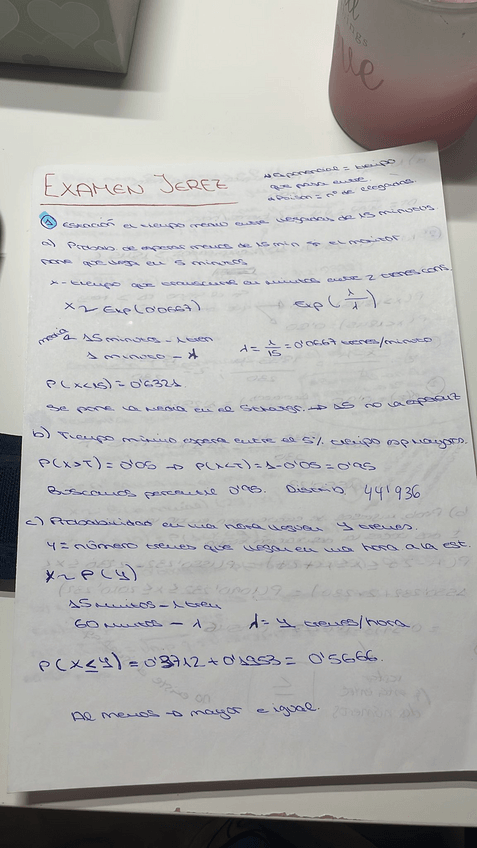 EXAMEN JEREZ
* Exponencial = tiempo
que pasa entre
* Poisson = nº de llegadas.
① Estación el tiempo medio entre llegadas de 15 minutos
a) Probab de esperar menos de 15 min si el monitor
pone que llega en 5 minutos
x = tiempo que transcurre en minutos entre 2 trenes cons.
X ~ Exp(0'0667) Exp(1/λ)
media 15 minutos - 1 tren
1 minuto - λ λ = 1/15 = 0'0667 trenes/minuto
P(X<15) = 0'6321
Se pone la media en el Statgr. → 15 no la
b) Tiempo mínimo espera entre el 5% tiempo esp mayores.
P(X>T) = 0'05 → P(X<T) = 1-0'05 = 0'95
Buscamos percentil 0'95. 44'936
c) Probabilidad en una hora lleguen 4 trenes.
Y = número trenes que llegan en una hora a la est.
X ~ P(4)
15 minutos - 1 tren
60 minutos - λ λ = 4 trenes/hora
P(X≤4) = 0'3712 + 0'1953 = 0'5666.
Al menos → mayor e igual.